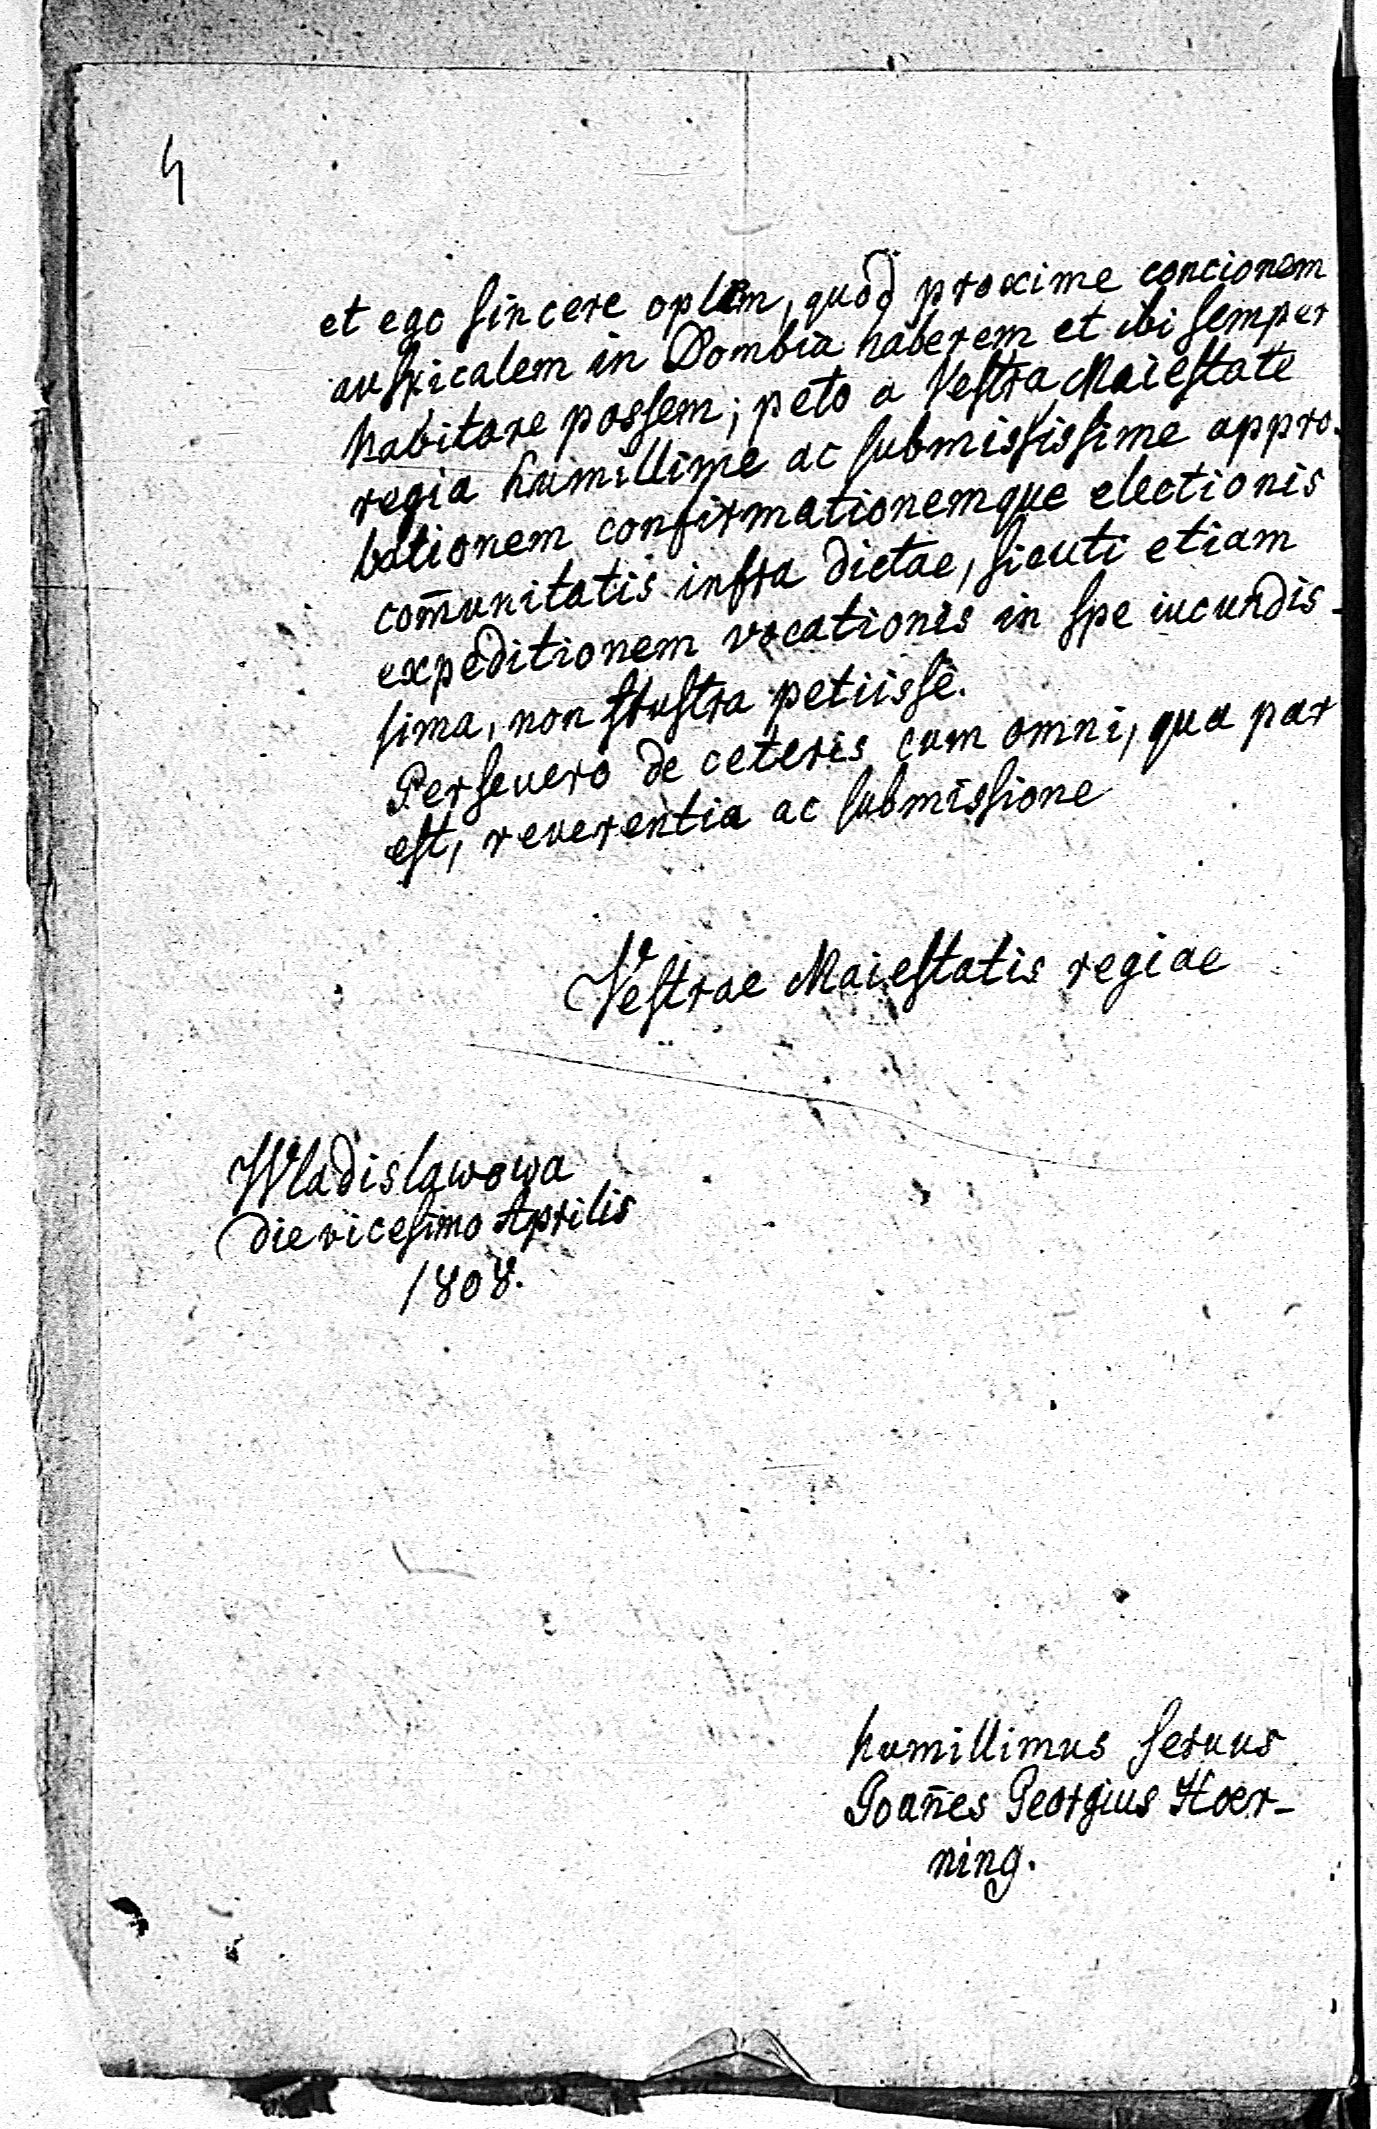 4
et ego sincere optem, quod proxime concionem
auspicalem in Dombia haberem et ibi semper
habitare possem; peto a Vestra Maiestate
regia humillime ac submississime appro-
bationem confirmationemque electionis
com̄unitatis infra dictae, sicuti etiam
expeditionem vocationis in spe iucundis-
sima, non frustra petiisse.
Perseuero de ceteris cum omni, qua par
est, reuerentia ac submissione
Vestrae Maiestatis regiae
Wladislawowa
die vicesimo Aprilis
1808.
humillimus seruus
Joan̄es Georgius Hoer-
ning.